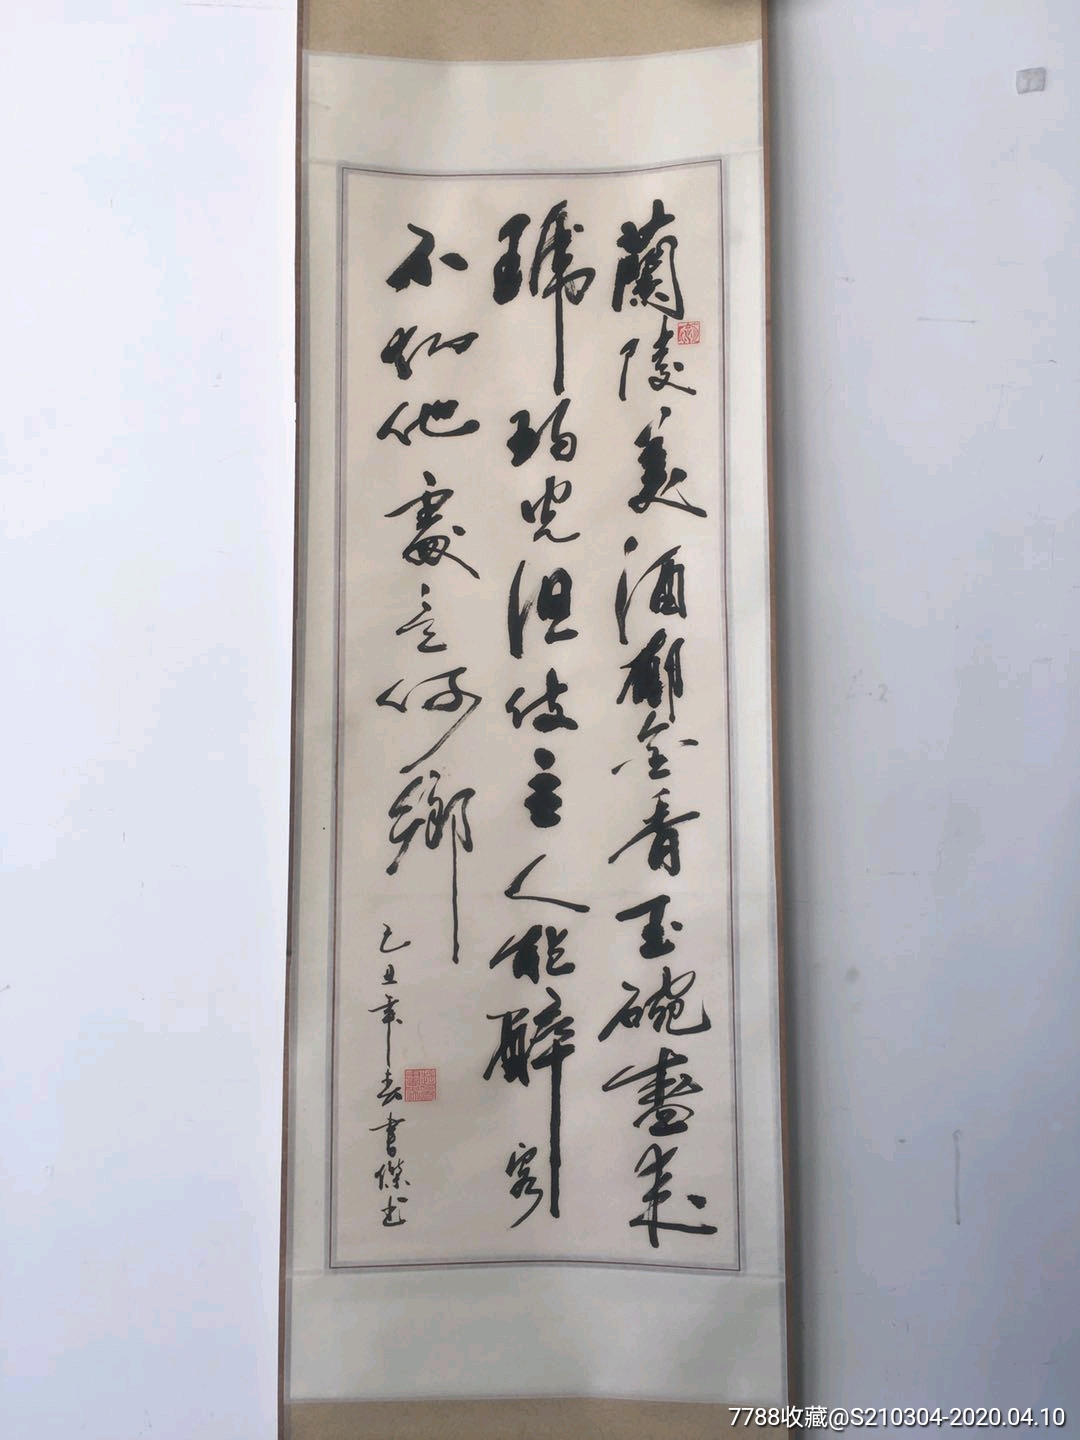 蘭陵美酒郁金香玉碗盛来
琥珀光但使主人能醉客
不知他處是何鄉
己丑年春書傑书
7788收藏@S210304-2020.04.10